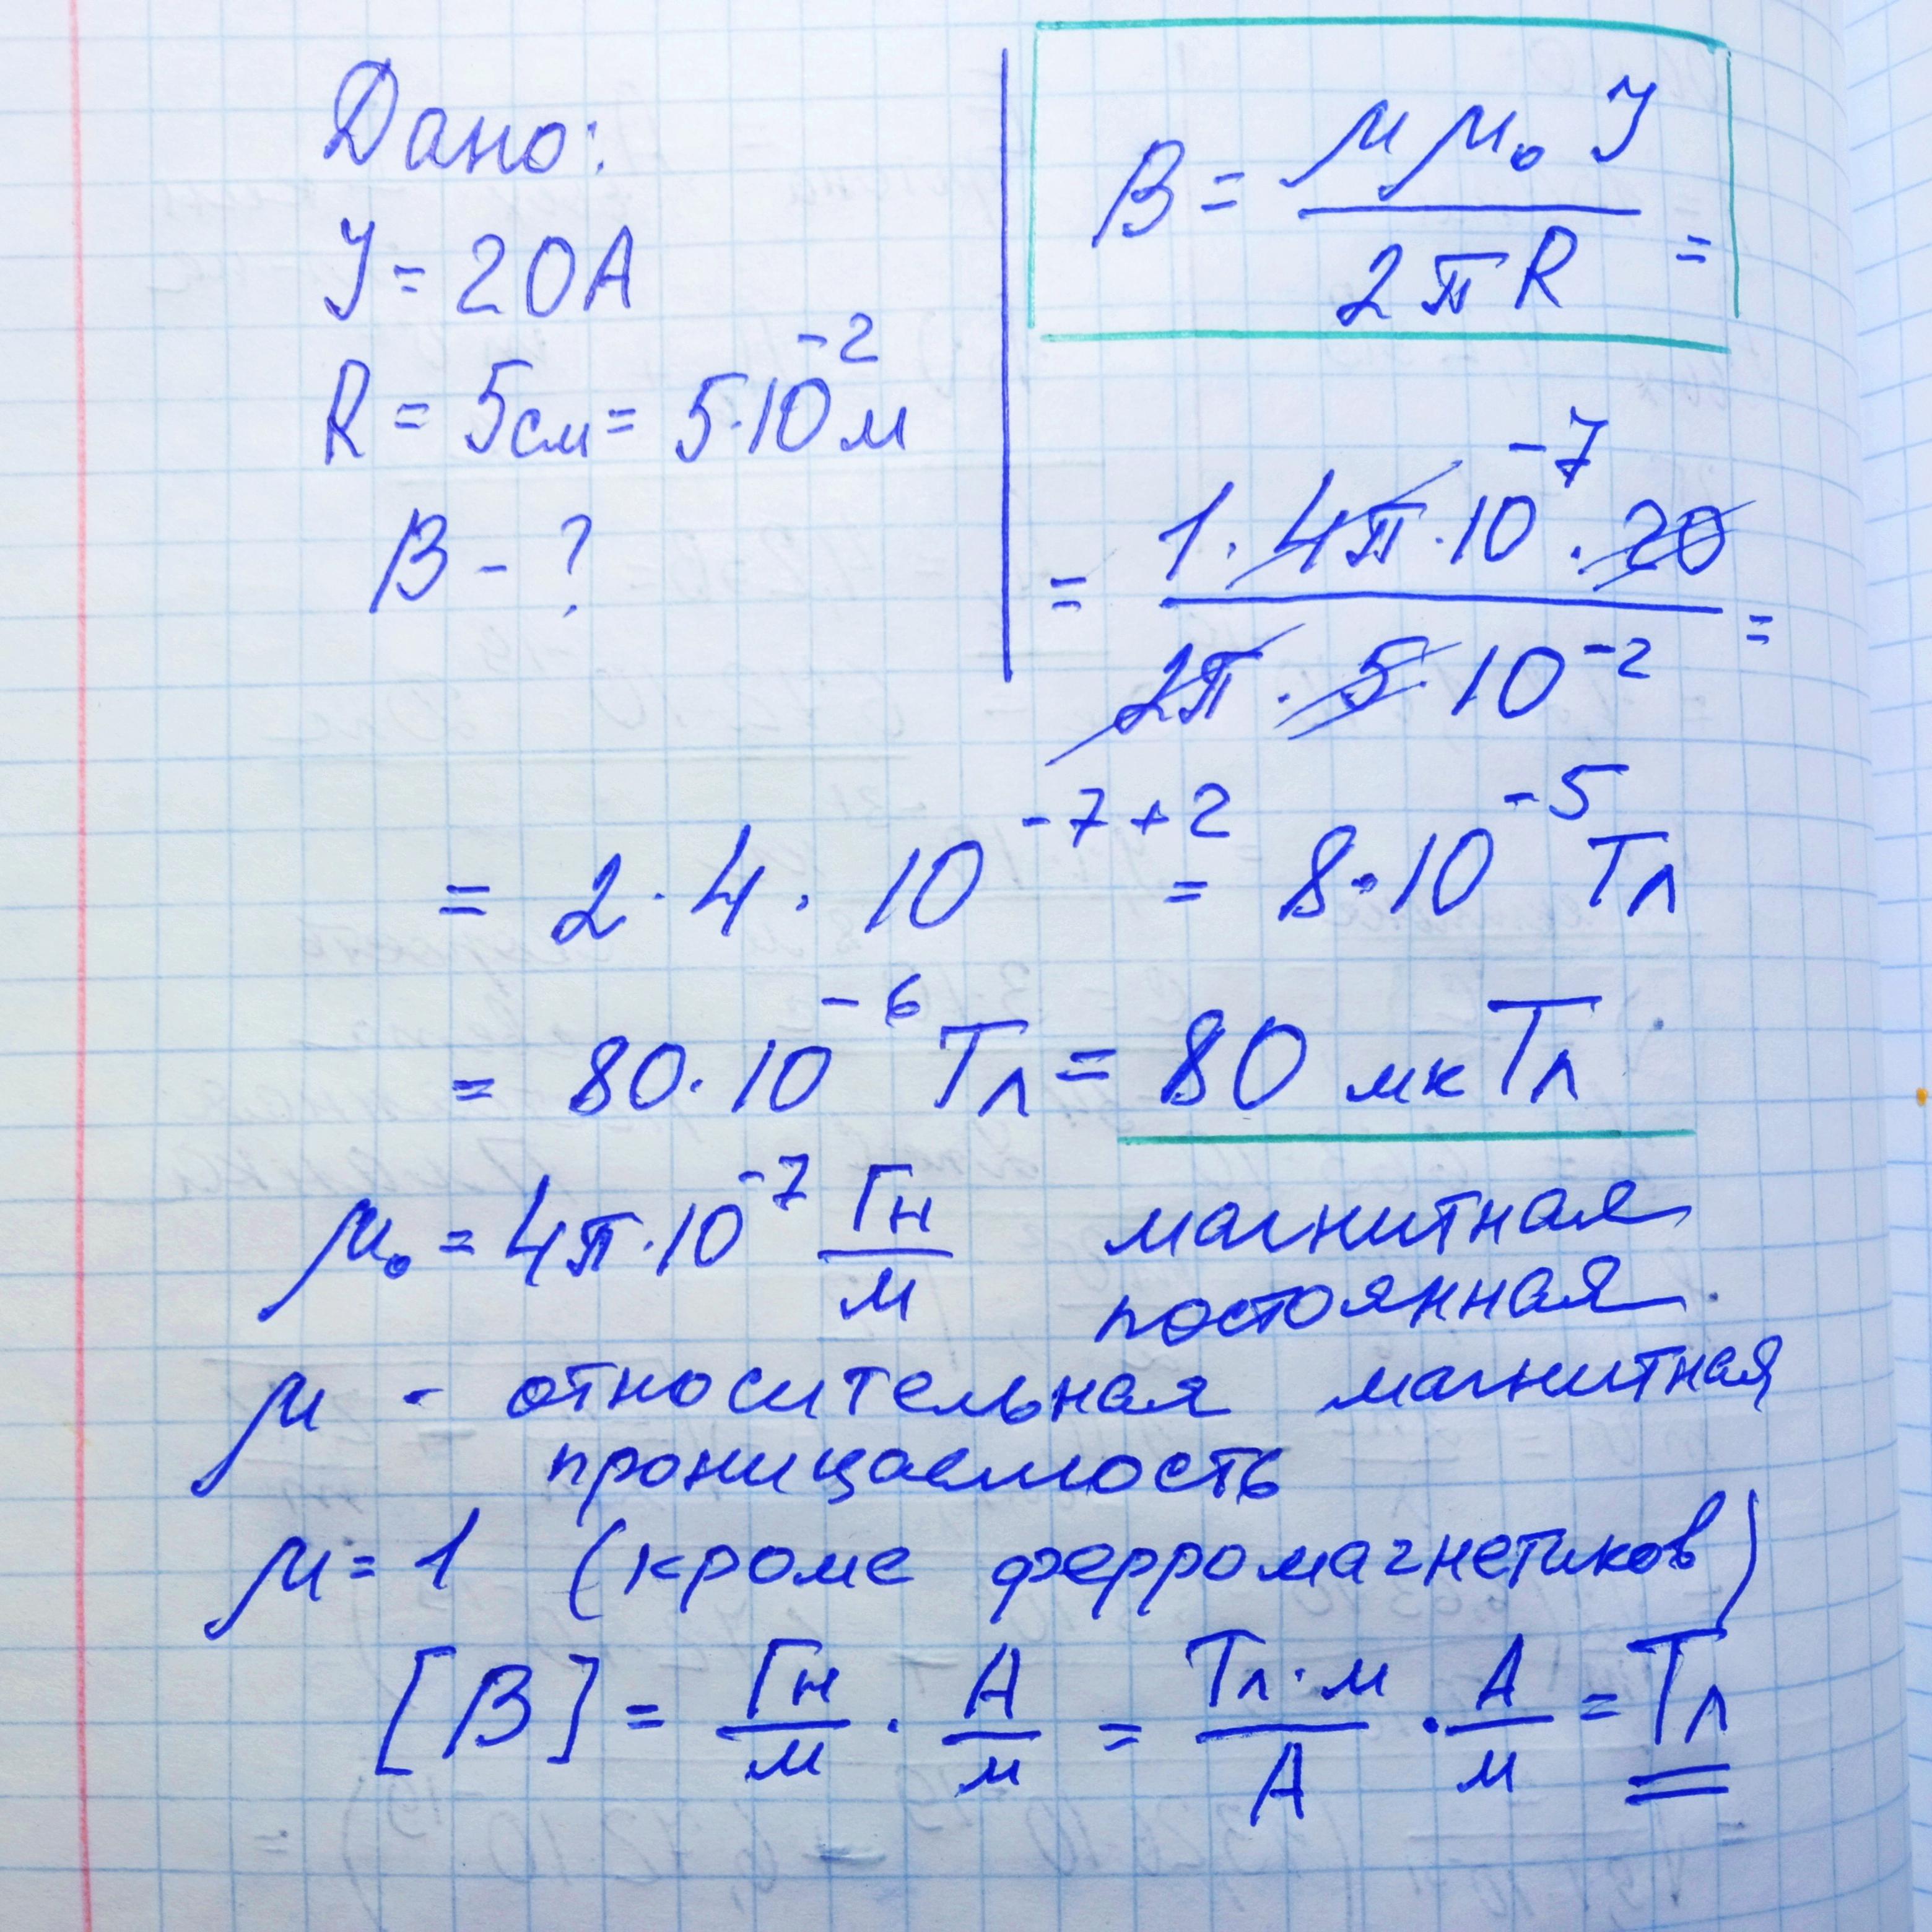 Дано:
I = 20 А
R = 5 см = 5·10⁻² м
B - ?
B = μ μ₀ I / 2 π R =
= 1 · 4π · 10⁻⁷ · 20 / 2π · 5 · 10⁻² =
= 2 · 4 · 10⁻⁷⁺² = 8 · 10⁻⁵ Тл
= 80 · 10⁻⁶ Тл = 80 мк Тл
μ₀ = 4π · 10⁻⁷ Гн / м магнитная
постоянная
μ - относительная магнитная
проницаемость
μ = 1 (кроме ферромагнетиков)
[B] = Гн / м · А / м = Тл · м / А · А / м = Тл